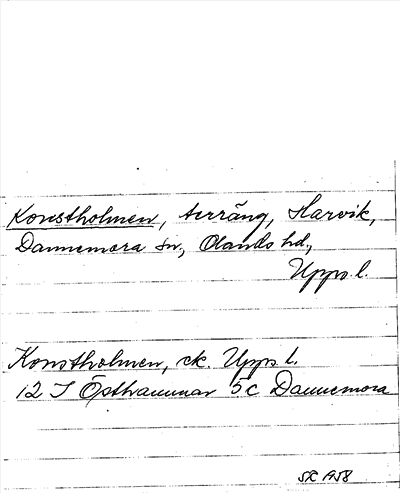 Konstholmen, terräng, Harvik,
Dannemora sn, Olands hd,
Upps. l.
Konstholmen, ek. Upps l.
12 I Östhammar 5c Dannemora
SR 1958